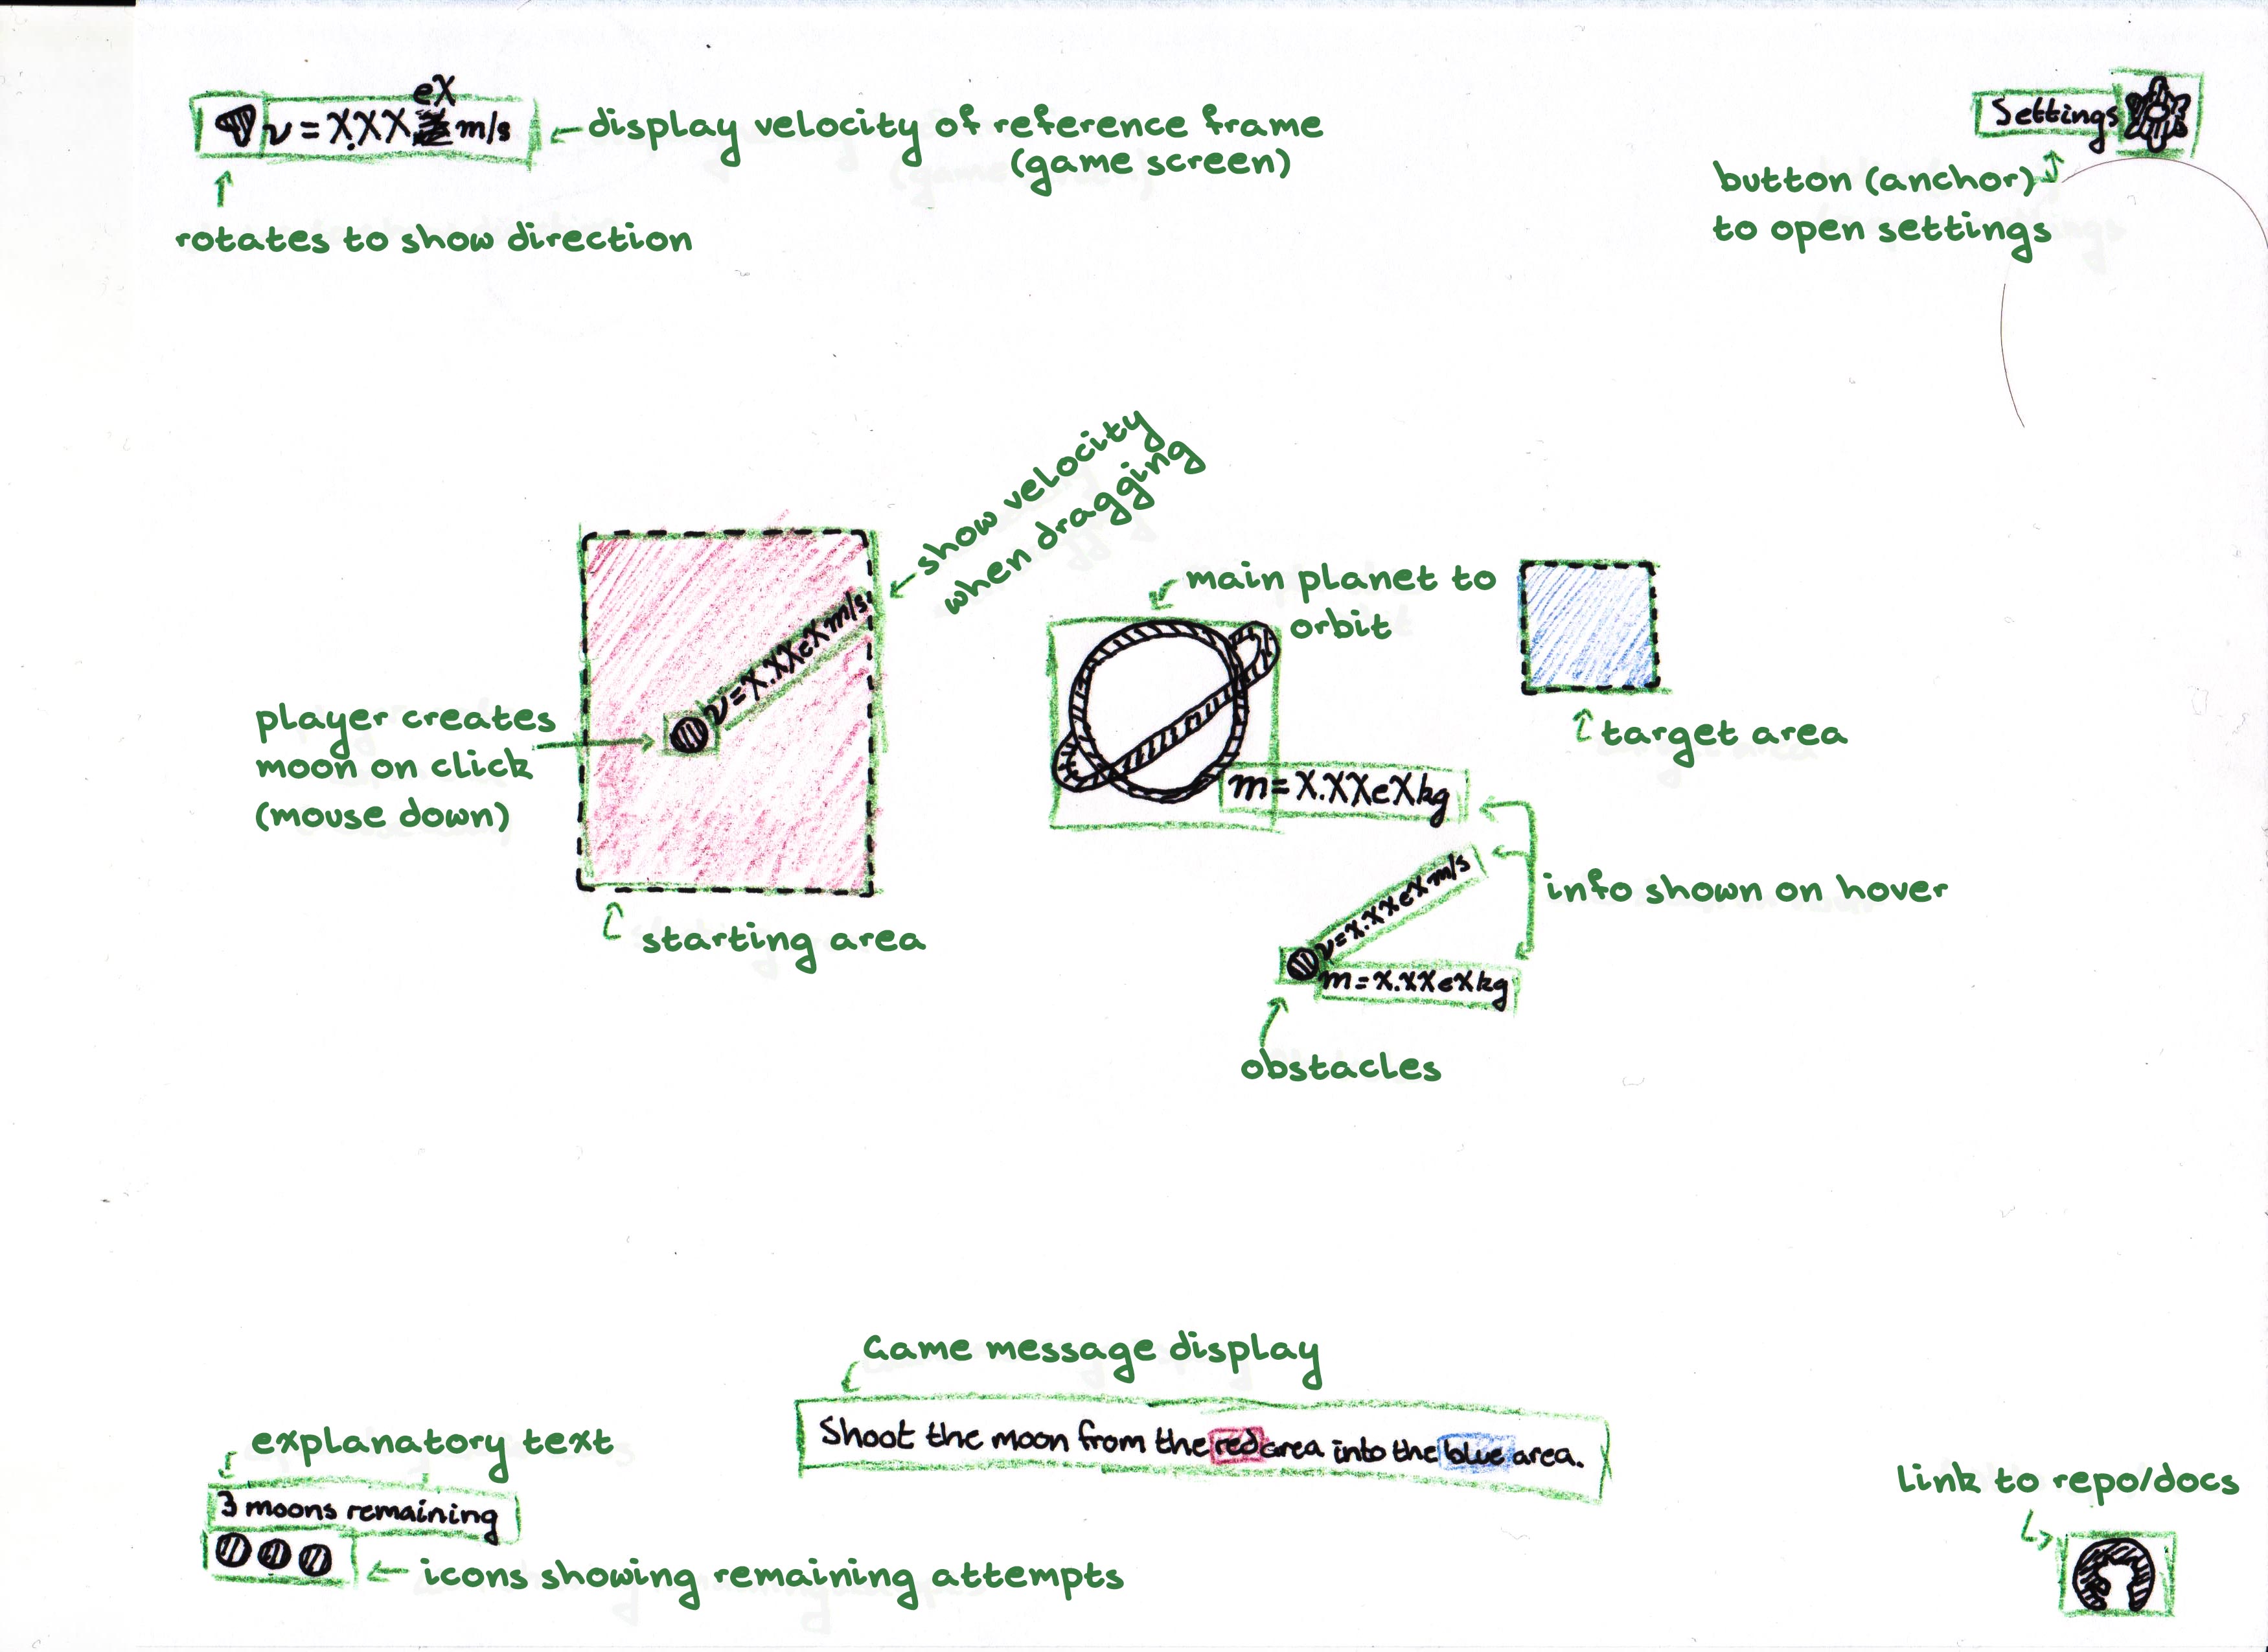 eX
v = X.XX m/s
display velocity of reference frame
(game screen)
rotates to show direction
Settings
button (anchor)
to open settings
show velocity
when dragging
v = X.XXeX m/s
player creates
moon on click
(mouse down)
starting area
main planet to
orbit
m = X.XXeX kg
target area
v = X.XXeX m/s
m = X.XXeX kg
info shown on hover
obstacles
Game message display
Shoot the moon from the red area into the blue area.
explanatory text
3 moons remaining
icons showing remaining attempts
Link to repo/docs